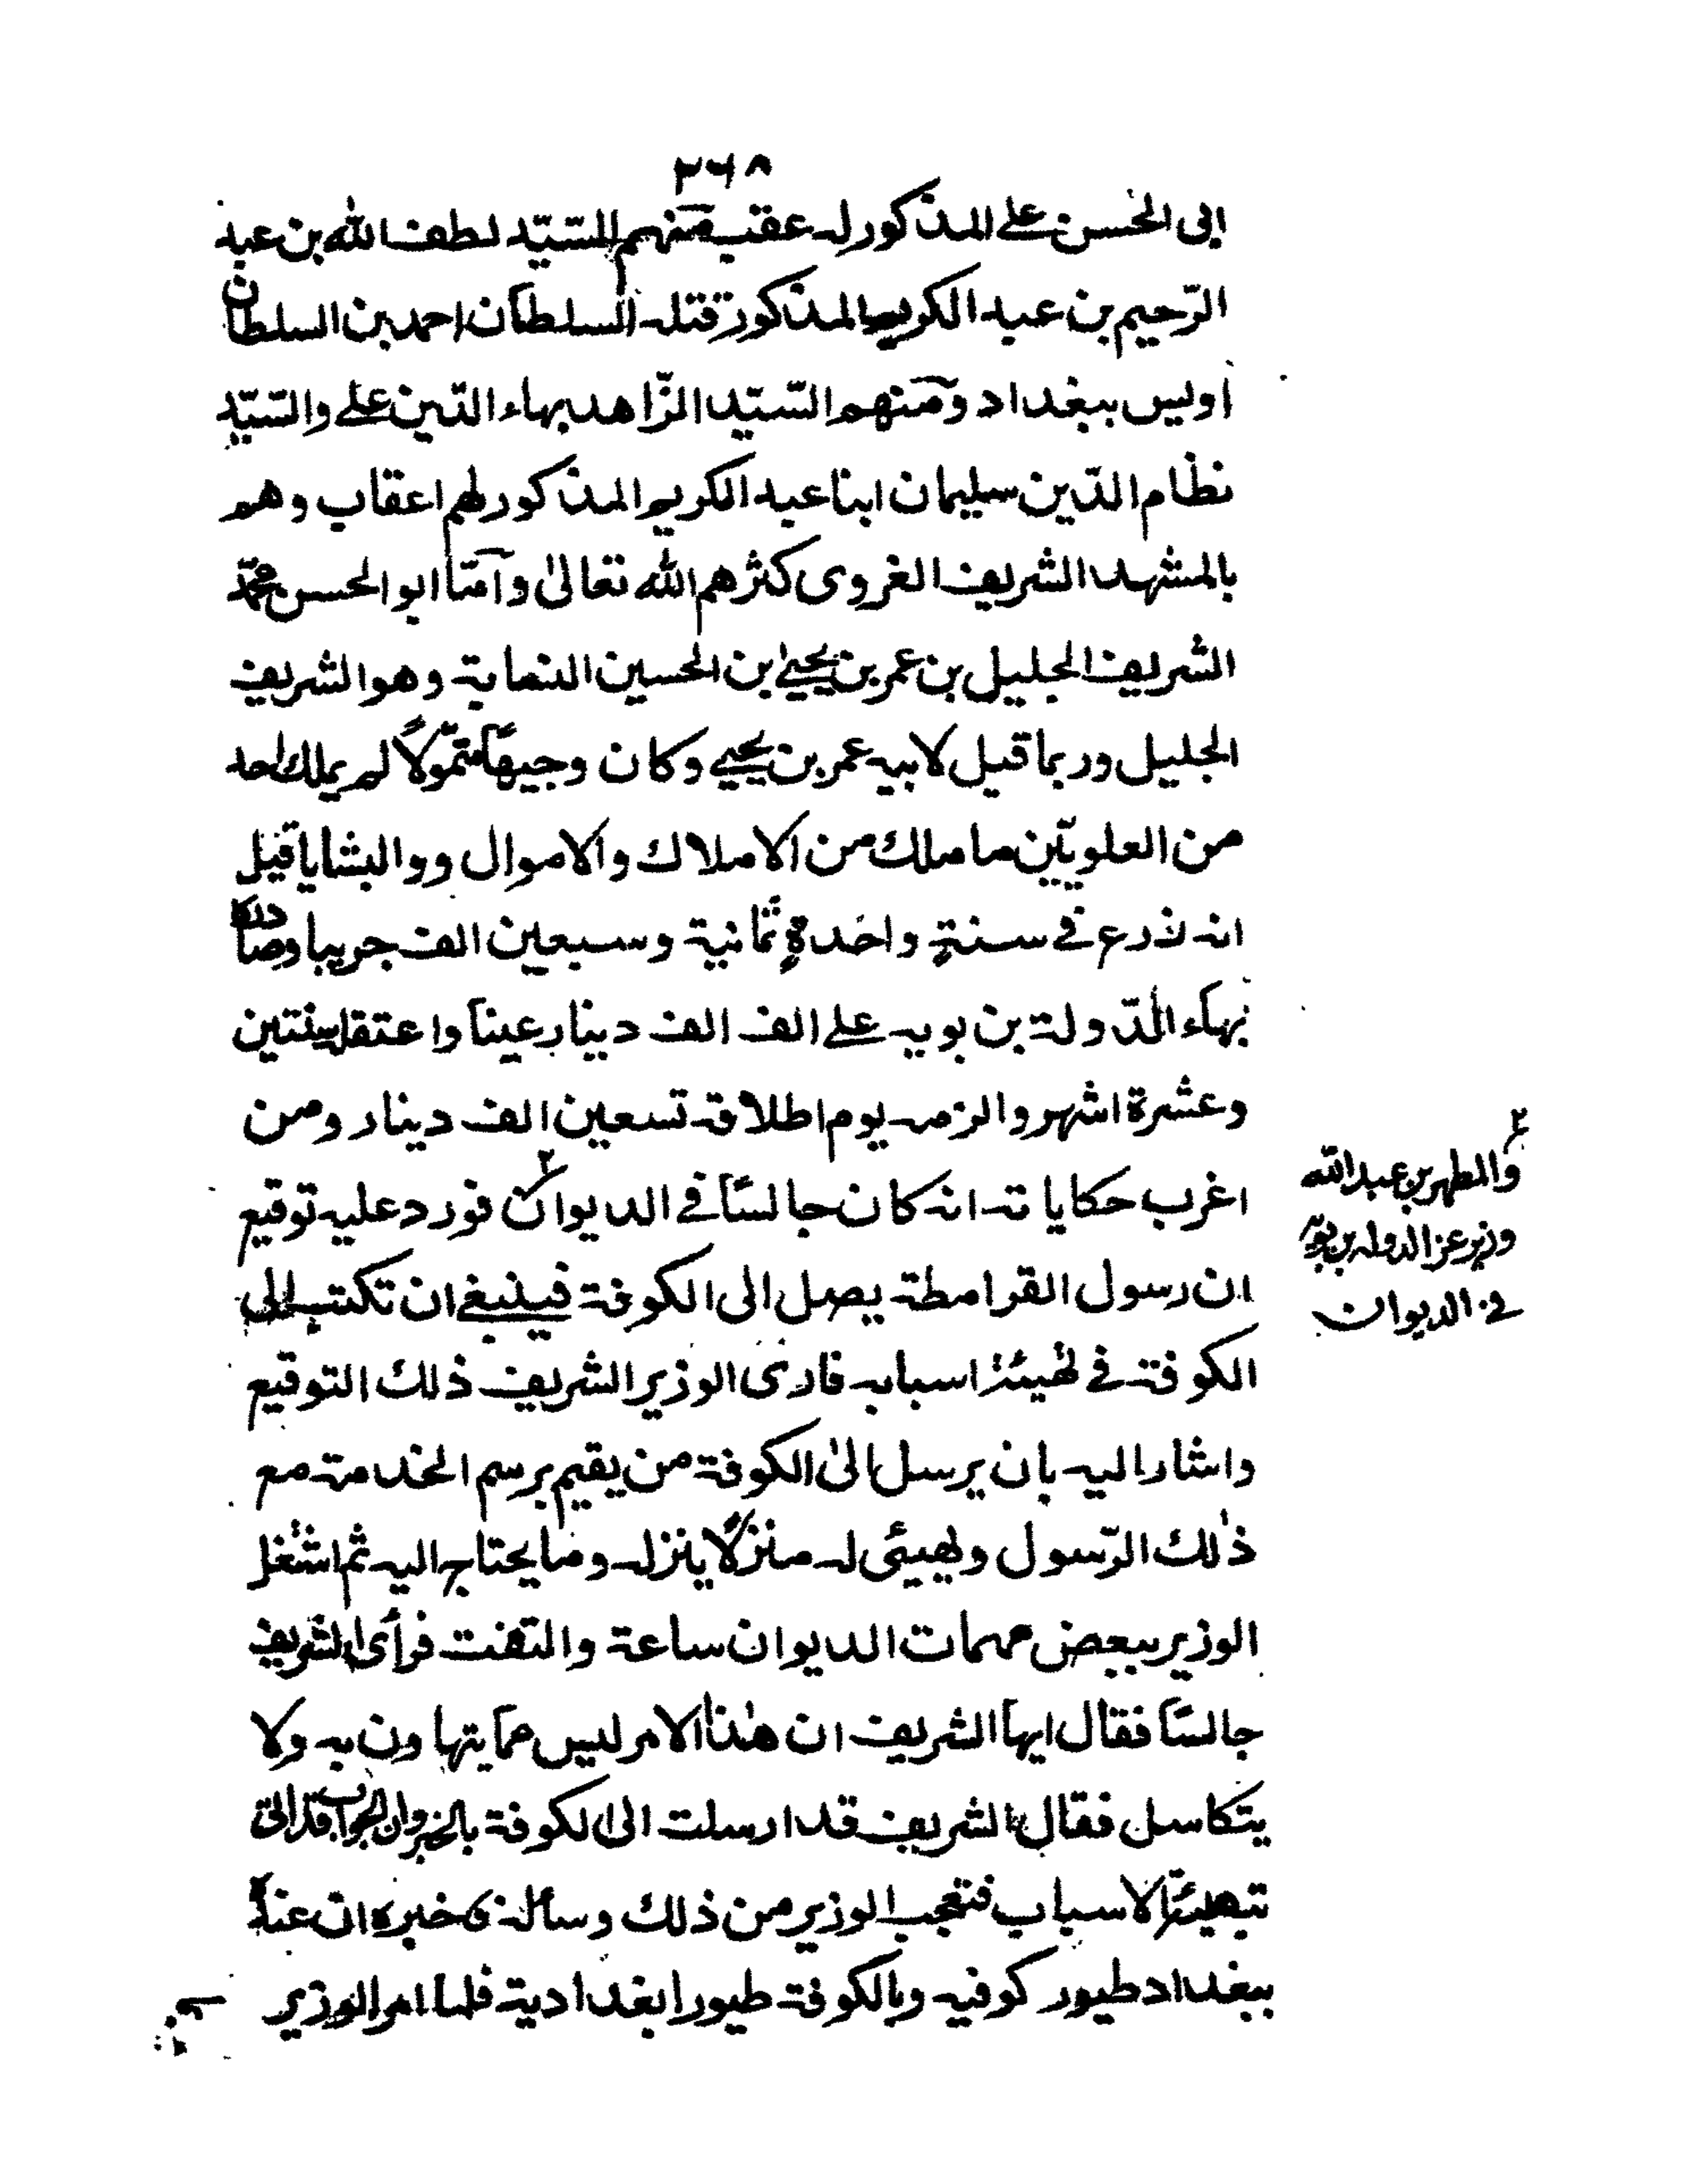 ٢٦٨
ابى الحسن على المذكور له عقب منهم السّيّد لطف الله بن عبد
الرّحيم بن عبد الكريم المذكور قتله السلطان احمد بن السلطان
اويس ببغداد ومنهم السّيّد الزّاهد بهاء الدّين على والسّيّد
نظام الدّين سليمان ابنا عبد الكريم المذكور لهم اعقاب وهم
بالمشهد الشريف الغروى كثرهم الله تعالىٰ وامّا ابو الحسن محمّد
الشريف الجليل بن عمر بن يحيىٰ بن الحسين النسّابة وهو الشريف
الجليل وربما قيل لابيه عمر بن يحيى وكان وجيهاً متموّلاً لم يملك احد
من العلويّين ما ملك من الاملاك والاموال ووالبشايا قيل
انه ذرع في سنةٍ واحدةٍ ثمانية وسبعين الف جريبا وصادره
بهاء الدّولة بن بويه على الف الف دينار عيناً واعتقله سنتين
وعشرة اشهر والزمه يوم اطلاقه تسعين الف دينار ومن
اغرب حكاياته انه كان جالسًا في الديوان ٢ فورد عليه توقيع
ان رسول القرامطة يصل الى الكوفة فينبغي ان تكتب الى
الكوفة في تهيئة اسبابه فارى الوزير الشريف ذلك التوقيع
واشار اليه بان يرسل الىٰ الكوفة من يقيم برسم الخدمة مع
ذٰلك الرّسول ويهيئى له منزلًا ينزله وما يحتاج اليه ثم اشتغل
الوزير ببعض مهمات الديوان ساعة والتفت فرأى الشريف
جالسًا فقال ايها الشريف ان هٰذا الامر ليس مما يتهاون به ولا
يتكاسل فقال الشريف قد ارسلت الى الكوفة بالخبر وان الجواب قد اتى
بتهيئة الاسباب فتعجب الوزير من ذلك وسأله فاخبره ان عنده
ببغداد طيور كوفيه وبالكوفة طيورا بغدادية فلما امر الوزير
٢
والمطهر بن عبد الله
وزير عز الدوله بن بويه
في الديوان